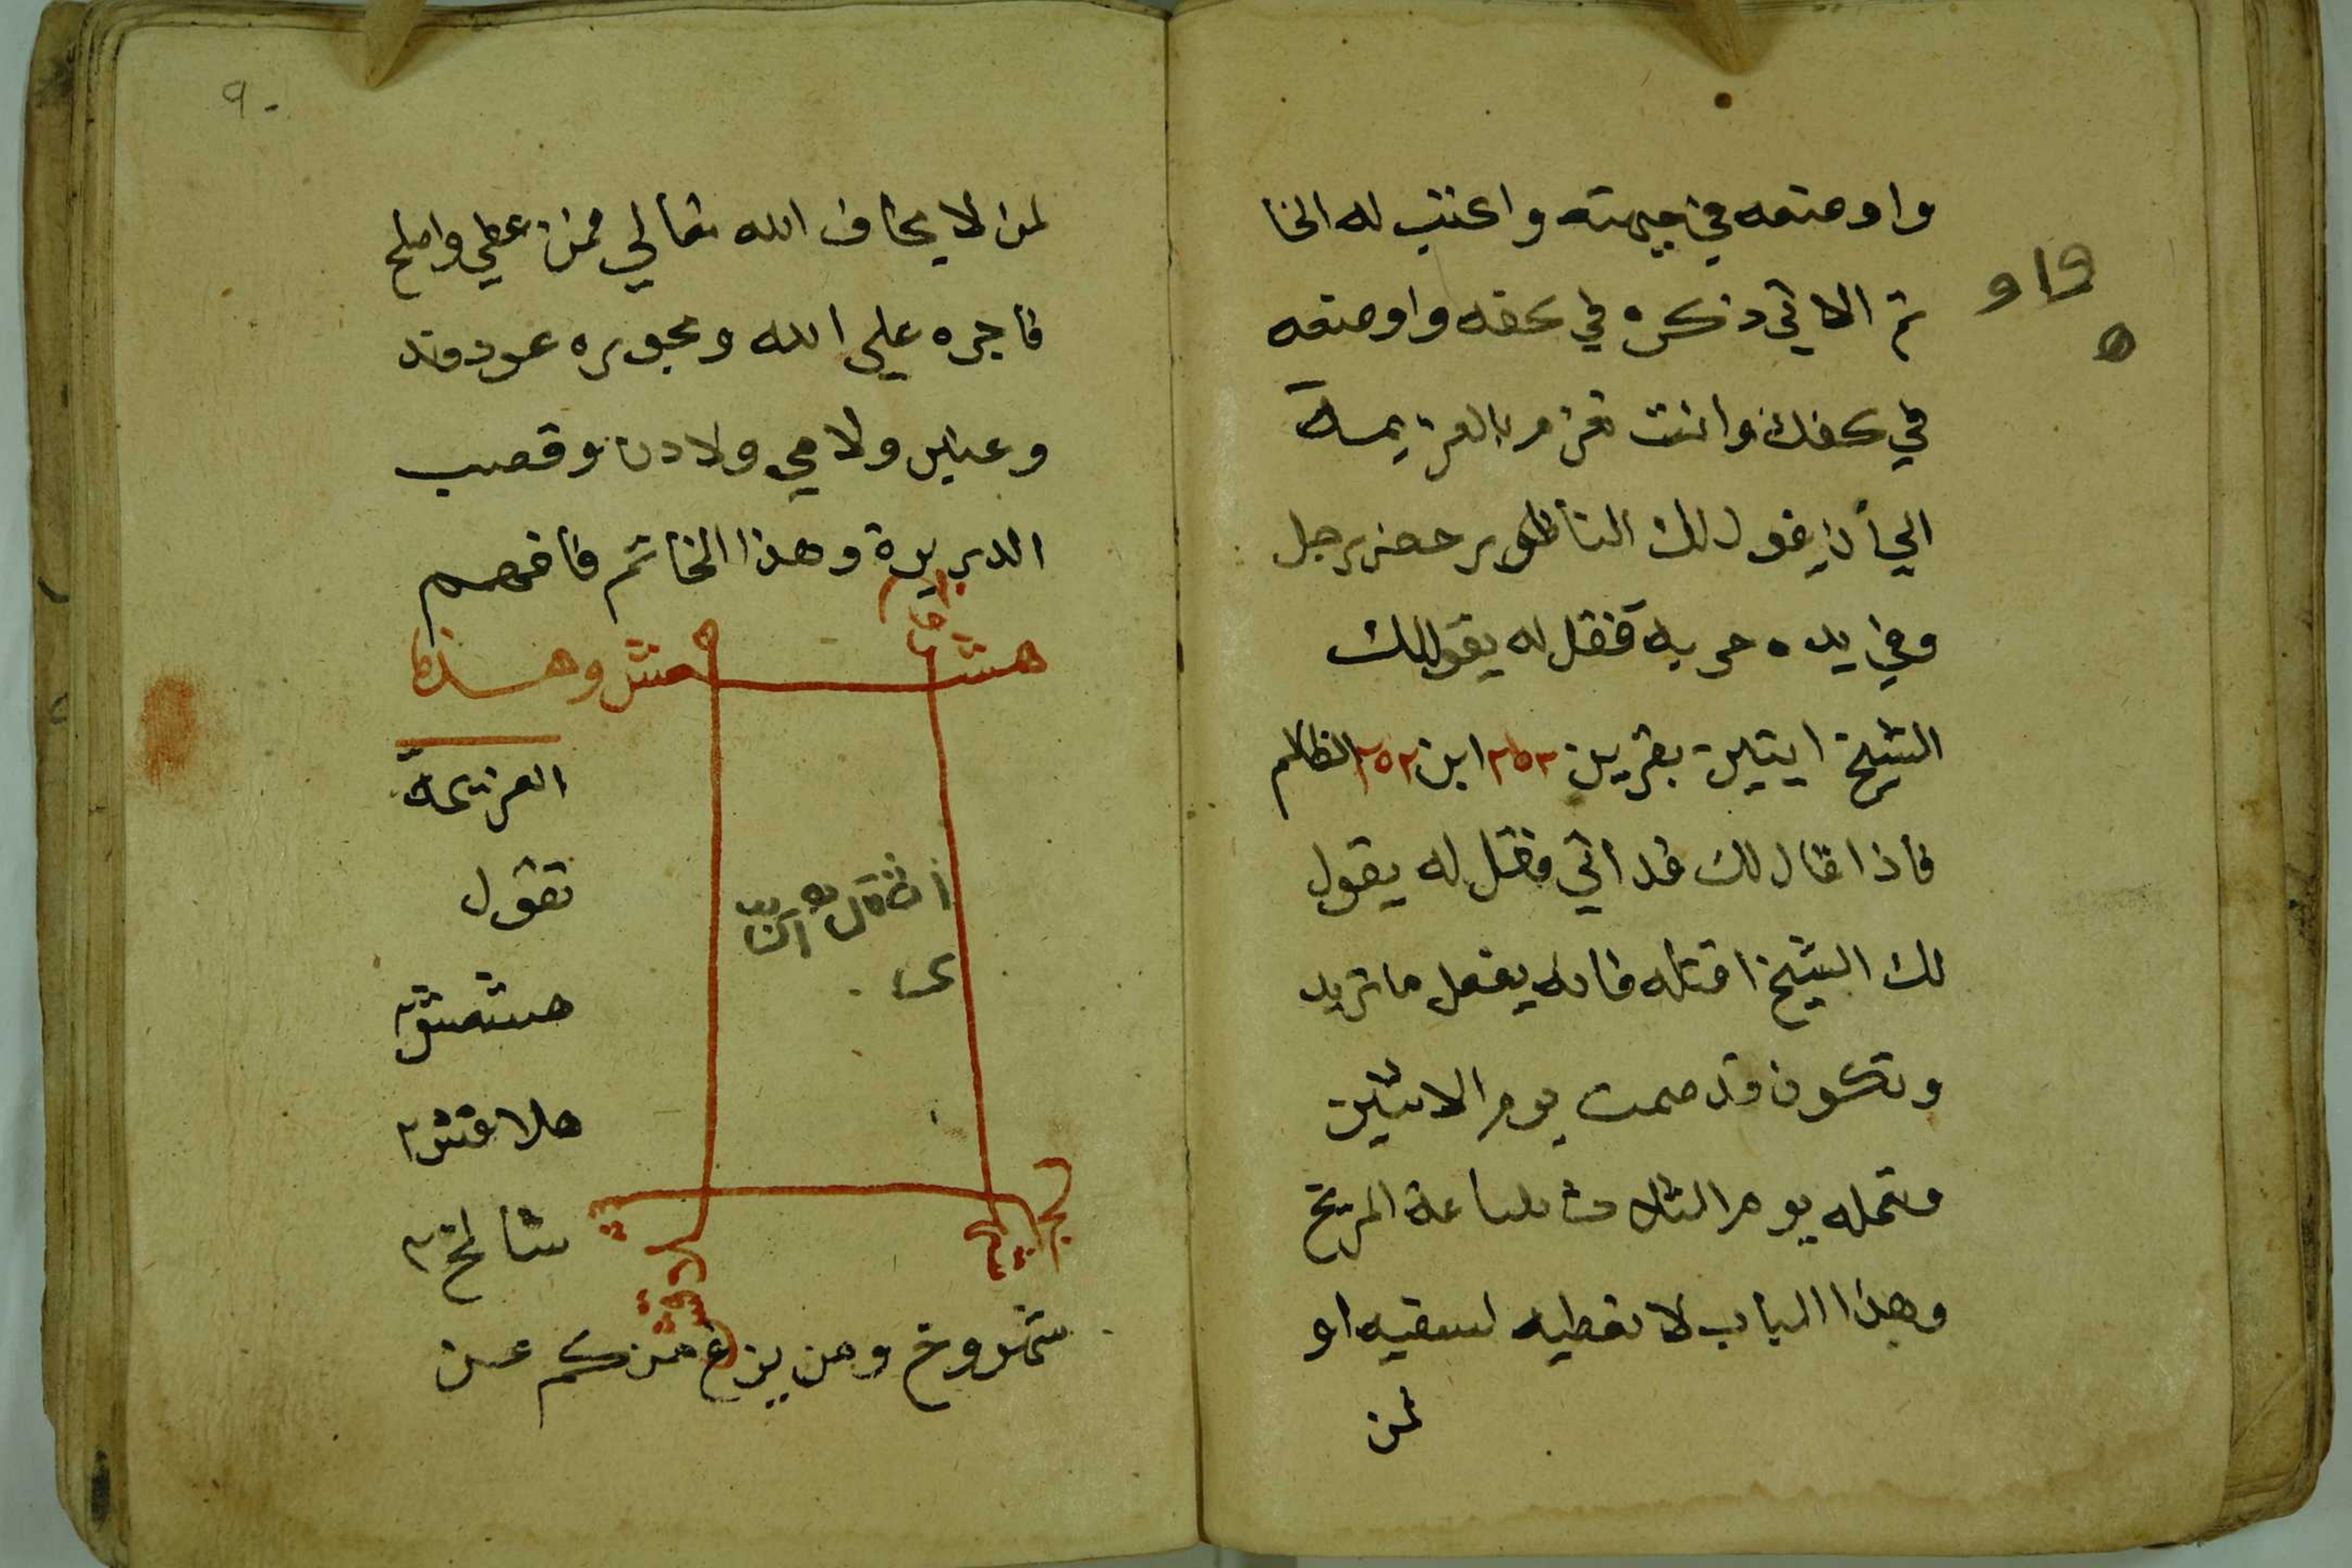 واوضعه في جبهته واكتب له الخا
تم الاتي ذكره في كفه واوضعه
في كفك وانت تعزم بالعزيمة
الي أن يقول لك الناظور حضر رجل
وفي يده حربة فقل له يقول لك
الشيخ ايتين بقرين ٢٥٢ ابن ٢٥٢ الظالم
فاذا قال لك قد اتي فقل له يقول
لك الشيخ اقتله فانه يفعل ما تريد
وتكون قد صمت يوم الاثنين
وتعمله يوم الثلاث ساعة المريخ
وهذا الباب لا تعطيه لسفيه او
لمن
٩٠
لمن لا يخاف الله تعالي فمن عفي واصلح
فاجره علي الله وبخوره عود وند
وعنبر ولامي ولادن وقصب
الدريرة وهذا الخاتم فافهم
هش وهذه
العزيمة
تقول
هشمش
هلاقش ٢
شالخ ٢
شمروخ ومن يزغ منكم عن